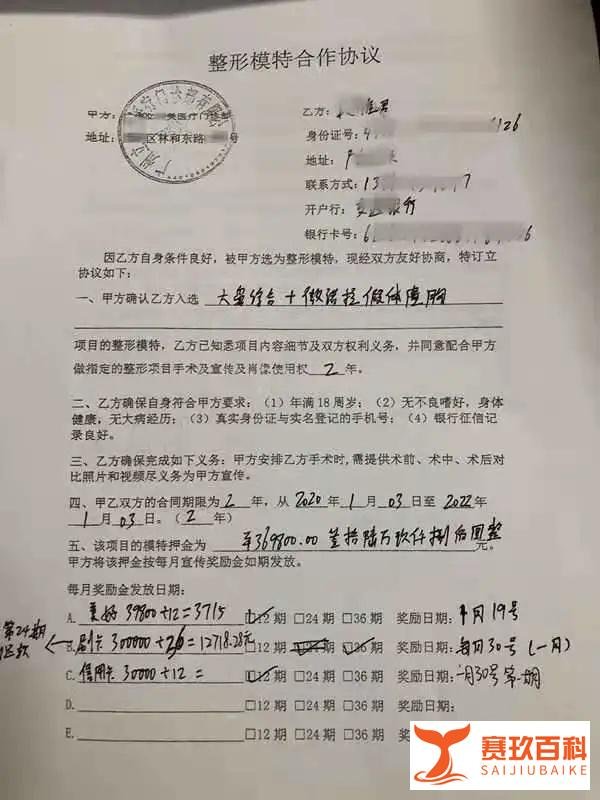 整形模特合作协议
甲方: 美医疗门诊部
乙方:
身份证号: 4 6126
地址: 区林和东路 号
地址: 广
联系方式: 13 7
开户行: 银行
银行卡号: 6 6
因乙方自身条件良好，被甲方选为整形模特，现经双方友好协商，特订立
协议如下：
一、甲方确认乙方入选 大腿综合+微滑 假体隆胸
项目的整形模特，乙方已知悉项目内容细节及双方权利义务，并同意配合甲方
做指定的整形项目手术及宣传及肖像使用权 2 年。
二、乙方确保自身符合甲方要求：（1）年满18周岁；（2）无不良嗜好，身体
健康，无大病经历；（3）真实身份证与实名登记的手机号；（4）银行征信记
录良好。
三、乙方确保完成如下义务：甲方安排乙方手术时,需提供术前、术中、术后对
比照片和视频尽义务为甲方宣传。
四、甲乙双方的合同期限为 2 年，从 2020 年 1 月 03 日至 2022 年
1 月 03 日。（ 2 年）
五、该项目的模特押金为 ¥369800.00 叁拾陆万玖仟捌佰圆整 元。
甲方将该押金按每月宣传奖励金如期发放。
每月奖励金发放日期：
A. 美好 39800÷12=3715 ☑12期 □24期 □36期 奖励日期： 1月19号
第24期
还款
B. 刷卡 300000÷ =12718.28元 □12期 □24期 □36期 奖励日期： 每月30号(一月)
C. 信用卡 30000÷12= ☑12期 □24期 □36期 奖励日期： 一月30号第一期
D. □12期 □24期 □36期 奖励日期：
E. □12期 □24期 □36期 奖
赛玖百科
SAIJIUBAIKE